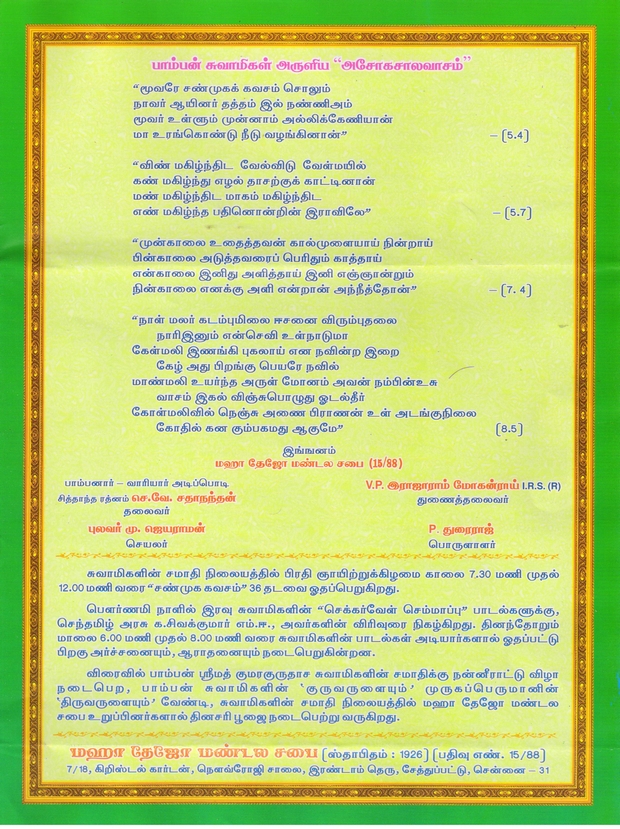 பாம்பன் சுவாமிகள் அருளிய “அசோகசாலவாசம்”
“மூவரே சண்முகக் கவசம் சொலும்
நாவர் ஆயினர் தத்தம் இல் நண்ணிஅம்
மூவர் உள்ளும் முன்னாம் அல்லிக்கேணியான்
மா உரங்கொண்டு நீடு வழங்கினான்” – (5.4)
“விண் மகிழ்ந்திட வேல்விடு வேள்மயில்
கண் மகிழ்ந்து எழல் தாசற்குக் காட்டினான்
மண் மகிழ்ந்திட மாகம் மகிழ்ந்திட
எண் மகிழ்ந்த பதினொன்றின் இராவிலே” – (5.7)
“முன்காலை உதைத்தவன் கால்முளையாய் நின்றாய்
பின்காலை அடுத்தவரைப் பெரிதும் காத்தாய்
என்காலை இனிது அளித்தாய் இனி எஞ்ஞான்றும்
நின்காலை எனக்கு அளி என்றான் அந்நீத்தோன்” – (7. 4)
“நாள் மலர் கடம்புமிலை ஈசனை விரும்புதலை
நாரிஇனும் என்செவி உள்நாடுமா
கேள்மலி இணங்கி புகலாய் என நவின்ற இறை
கேழ் அது பிறங்கு பெயரே நவில்
மாண்மலி உயர்ந்த அருள் மோனம் அவன் நம்பின்உசு
வாசம் இகல் விஞ்சுபொழுது ஓடல்தீர்
கோள்மலிவில் நெஞ்சு அணை பிராணன் உள் அடங்குநிலை
கோதில் கன கும்பகமது ஆகுமே” (8.5)
இங்ஙனம்
மஹா தேஜோ மண்டல சபை (15/88)
பாம்பனார் – வாரியார் அடிப்பொடி
சித்தாந்த ரத்னம் செ.வே. சதாநந்தன்
தலைவர்
V.P. இராஜாராம் மோகன்ராய் I.R.S. (R)
துணைத்தலைவர்
புலவர் மு. ஜெயராமன்
செயலர்
P. துரைராஜ்
பொருளாளர்
சுவாமிகளின் சமாதி நிலையத்தில் பிரதி ஞாயிற்றுக்கிழமை காலை 7.30 மணி முதல்
12.00 மணி வரை “சண்முக கவசம்” 36 தடவை ஓதப்பெறுகிறது.
பௌர்ணமி நாளில் இரவு சுவாமிகளின் “செக்கர்வேள் செம்மாப்பு” பாடல்களுக்கு,
செந்தமிழ் அரசு க.சிவக்குமார் எம்.ஈ., அவர்களின் விரிவுரை நிகழ்கிறது. தினந்தோறும்
மாலை 6.00 மணி முதல் 8.00 மணி வரை சுவாமிகளின் பாடல்கள் அடியார்களால் ஓதப்பட்டு
பிறகு அர்ச்சனையும், ஆராதனையும் நடைபெறுகின்றன.
விரைவில் பாம்பன் ஸ்ரீமத் குமரகுருதாச சுவாமிகளின் சமாதிக்கு நன்னீராட்டு விழா
நடைபெற, பாம்பன் சுவாமிகளின் ‘குருவருளையும்’ முருகப்பெருமானின்
‘திருவருளையும்’ வேண்டி, சுவாமிகளின் சமாதி நிலையத்தில் மஹா தேஜோ மண்டல
சபை உறுப்பினர்களால் தினசரி பூஜை நடைபெற்று வருகிறது.
மஹா தேஜோ மண்டல சபை (ஸ்தாபிதம் : 1926) (பதிவு எண். 15/88)
7/18, கிறிஸ்டல் கார்டன், நௌவ்ரோஜி சாலை, இரண்டாம் தெரு, சேத்துப்பட்டு, சென்னை – 31